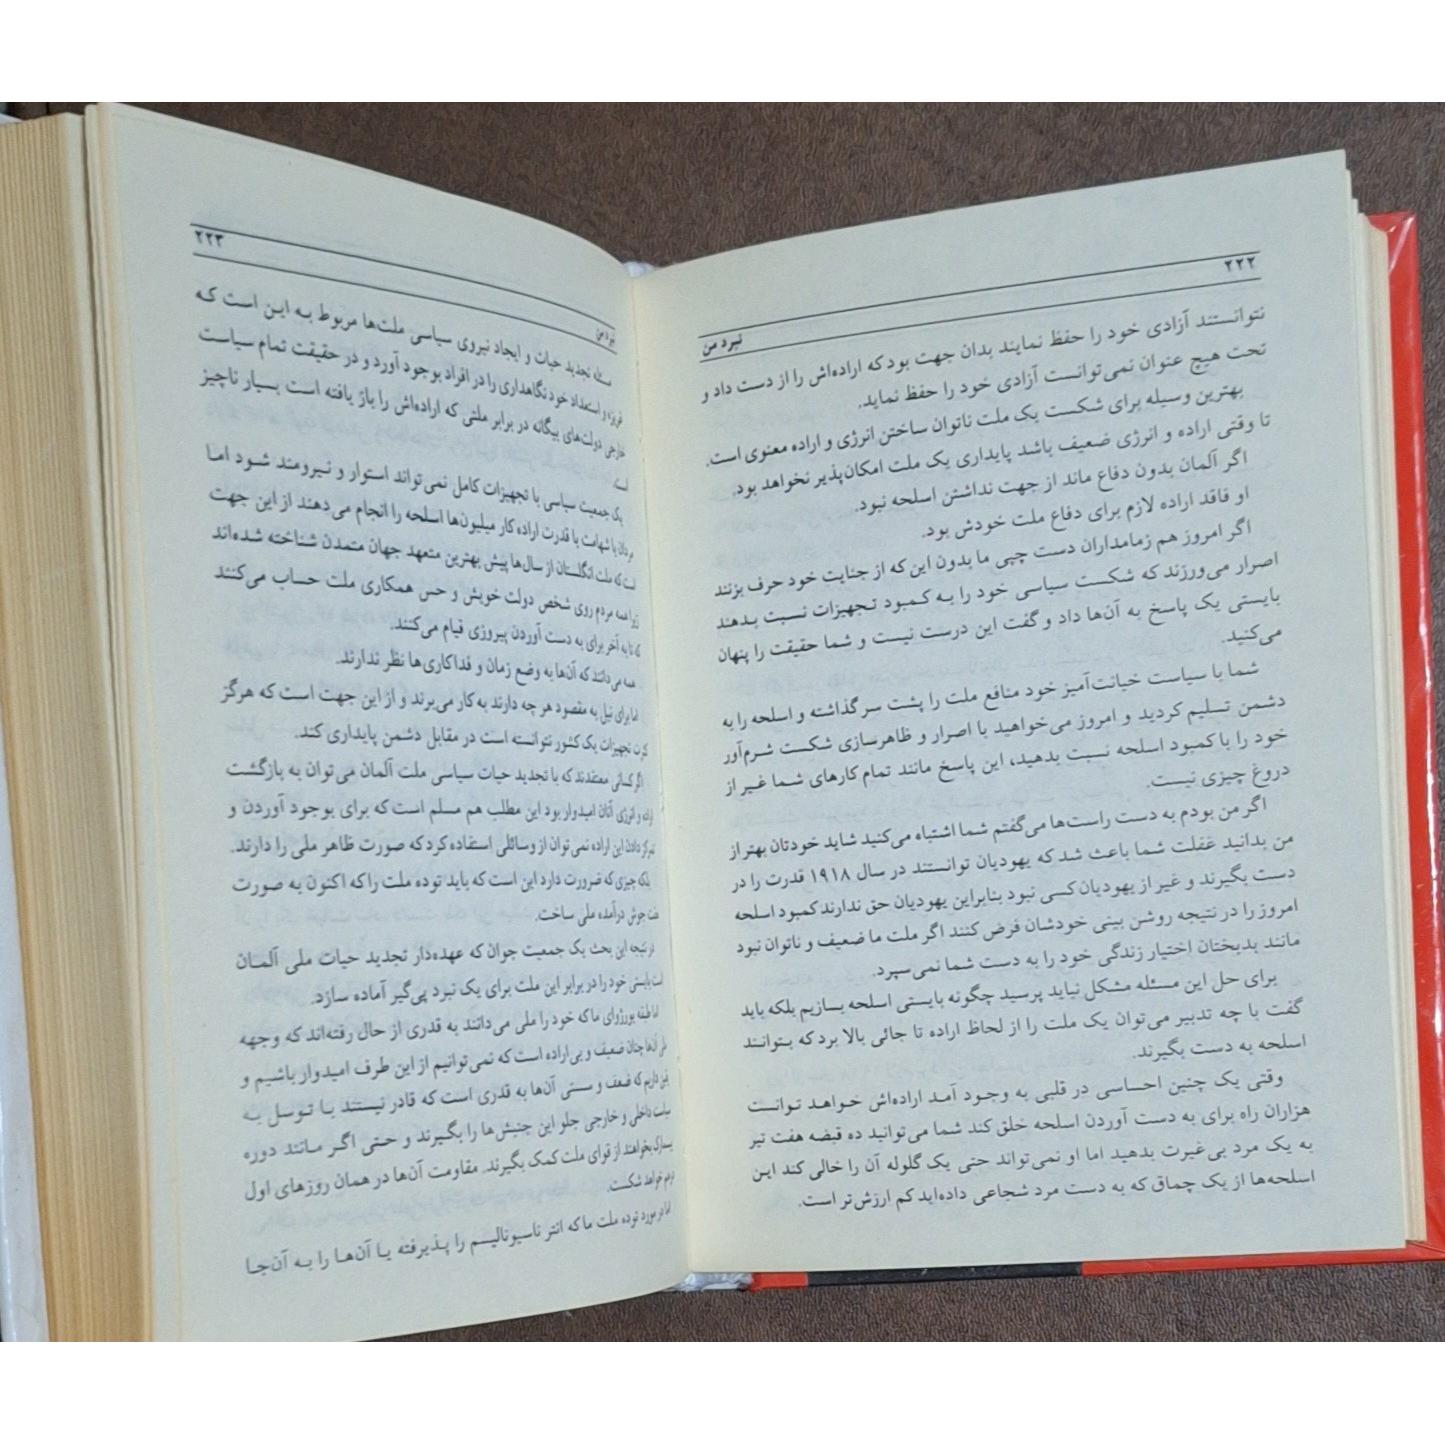 ۲۲۲
نبرد من
نتوانستند آزادی خود را حفظ نمایند بدان جهت بود که اراده‌اش را از دست داد و
تحت هیچ عنوان نمی‌توانست آزادی خود را حفظ نماید.
بهترین وسیله برای شکست یک ملت ناتوان ساختن انرژی و اراده معنوی است.
تا وقتی اراده و انرژی ضعیف باشد پایداری یک ملت امکان‌پذیر نخواهد بود.
اگر آلمان بدون دفاع ماند از جهت نداشتن اسلحه نبود.
او فاقد اراده لازم برای دفاع ملت خودش بود.
اگر امروز هم زمامداران دست چپی ما بدون این که از جنایت خود حرف بزنند
اصرار می‌ورزند که شکست سیاسی خود را به کمبود تجهیزات نسبت بدهند
بایستی یک پاسخ به آن‌ها داد و گفت این درست نیست و شما حقیقت را پنهان
می‌کنید.
شما با سیاست خیانت‌آمیز خود منافع ملت را پشت سر گذاشته و اسلحه را به
دشمن تسلیم کردید و امروز می‌خواهید با اصرار و ظاهرسازی شکست شرم‌آور
خود را با کمبود اسلحه نسبت بدهید، این پاسخ مانند تمام کارهای شما غیر از
دروغ چیزی نیست.
اگر من بودم به دست راست‌ها می‌گفتم شما اشتباه می‌کنید شاید خودتان بهتر از
من بدانید غفلت شما باعث شد که یهودیان توانستند در سال ۱۹۱۸ قدرت را در
دست بگیرند و غیر از یهودیان کسی نبود بنابراین یهودیان حق ندارند کمبود اسلحه
امروز را در نتیجه روشن بینی خودشان فرض کنند اگر ملت ما ضعیف و ناتوان نبود
مانند بدبختان اختیار زندگی خود را به دست شما نمی‌سپرد.
برای حل این مسئله مشکل نباید پرسید چگونه بایستی اسلحه بسازیم بلکه باید
گفت با چه تدبیر می‌توان یک ملت را از لحاظ اراده تا جائی بالا برد که بتوانند
اسلحه به دست بگیرند.
وقتی یک چنین احساسی در قلبی به وجود آمد اراده‌اش خواهد توانست
هزاران راه برای به دست آوردن اسلحه خلق کند شما می‌توانید ده قبضه هفت تیر
به یک مرد بی‌غیرت بدهید اما او نمی‌تواند حتی یک گلوله آن را خالی کند این
اسلحه‌ها از یک چماق که به دست مرد شجاعی داده‌اید کم ارزش‌تر است.
۲۲۳
نبرد من
مسئله تجدید حیات و ایجاد نیروی سیاسی ملت‌ها مربوط به این است که
غریزه و استعداد خود نگاهداری را در افراد بوجود آورد و در حقیقت تمام سیاست
خارجی دولت‌های بیگانه در برابر ملتی که اراده‌اش را باز یافته است بسیار ناچیز
است.
یک جمعیت سیاسی با تجهیزات کامل نمی‌تواند استوار و نیرومند شود اما
مردان با شهامت با قدرت اراده کار میلیون‌ها اسلحه را انجام می‌دهند از این جهت
است که ملت انگلستان از سال‌ها پیش بهترین متعهد جهان متمدن شناخته شده‌اند
زیرا همه مردم روی شخص دولت خویش و حس همکاری ملت حساب می‌کنند
که تا به آخر برای به دست آوردن پیروزی قیام می‌کنند.
همه می‌دانند که آن‌ها به وضع زمان و فداکاری‌ها نظر ندارند.
اما برای نیل به مقصود هر چه دارند به کار می‌برند و از این جهت است که هرگز
کثرت تجهیزات یک کشور نتوانسته است در مقابل دشمن پایداری کند.
اگر کسانی معتقدند که با تجدید حیات سیاسی ملت آلمان می‌توان به بازگشت
اراده و انرژی آنان امیدوار بود این مطلب هم مسلم است که برای بوجود آوردن و
تمرکز دادن این اراده نمی‌توان از وسائلی استفاده کرد که صورت ظاهر ملی را دارند.
بلکه چیزی که ضرورت دارد این است که باید توده ملت را که اکنون به صورت
جوش درآمده ملی ساخت.
در نتیجه این بحث یک جمعیت جوان که عهده‌دار تجدید حیات ملی آلمان
است بایستی خود را در برابر این ملت برای یک نبرد پی‌گیر آماده سازد.
اما طبقه بورژوای ما که خود را ملی می‌دانند به قدری از حال رفته‌اند که وجهه
ملی آن‌ها چنان ضعیف و بی‌اراده است که نمی‌توانیم از این طرف امیدوار باشیم و
یقین داریم که ضعف و سستی آن‌ها به قدری است که قادر نیستند با توسل به
سیاست داخلی و خارجی جلو این جنبش‌ها را بگیرند و حتی اگر مانند دوره
بیسمارک بخواهند از قوای ملت کمک بگیرند. مقاومت آن‌ها در همان روزهای اول
در هم خواهد شکست.
اما در مورد توده ملت ما که انتر ناسیونالیسم را پذیرفته یا آن‌ها را به آن‌جا